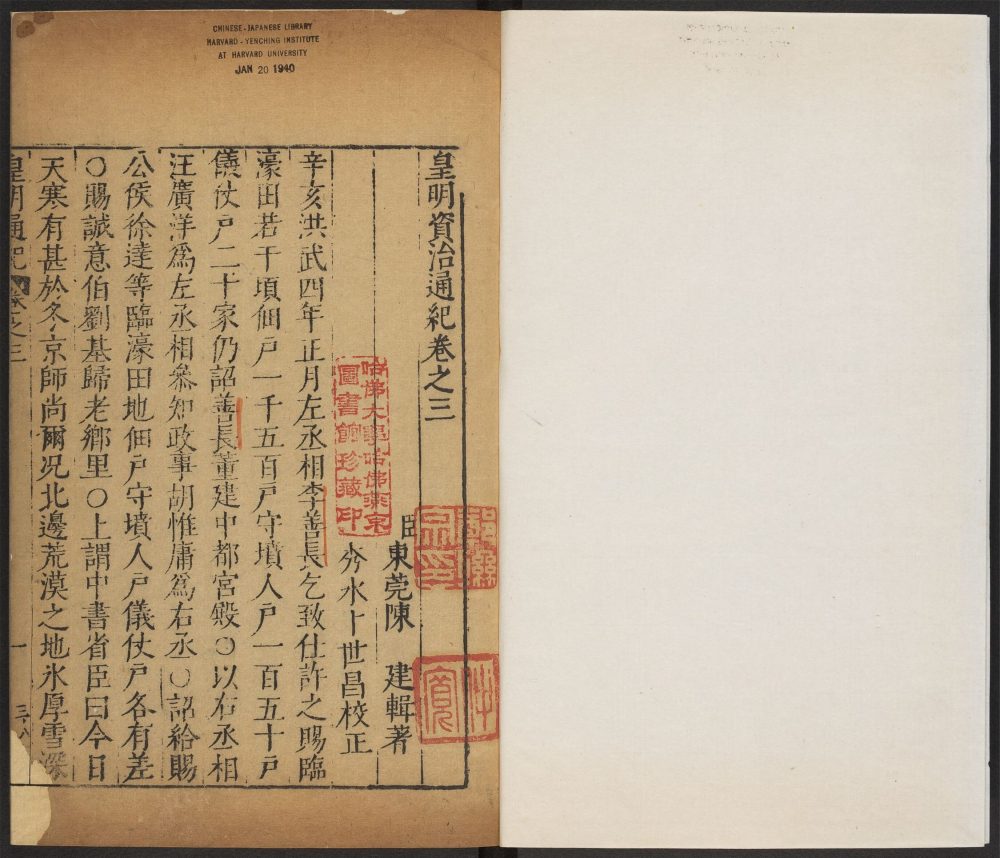 CHINESE-JAPANESE LIBRARY
HARVARD-YENCHING INSTITUTE
AT HARVARD UNIVERSITY
JAN 20 1940
皇明資治通紀卷之三
臣東莞陳 建輯著
秀水卜世昌校正
哈佛大學哈佛燕京
圖書館珍藏印
辛亥洪武四年正月左丞相李善長乞致仕許之賜臨
濠田若干頃佃戶一千五百戶守墳人戶一百五十戶
儀仗戶二十家仍詔善長董建中都宮殿○以右丞相
汪廣洋爲左丞相叅知政事胡惟庸爲右丞○詔給賜
公侯徐達等臨濠田地佃戶守墳人戶儀仗戶各有差
○賜誠意伯劉基歸老鄉里○上謂中書省臣曰今日
天寒有甚於冬京師尚爾况北邊荒漠之地氷厚雪深
皇明通紀 卷之三 一